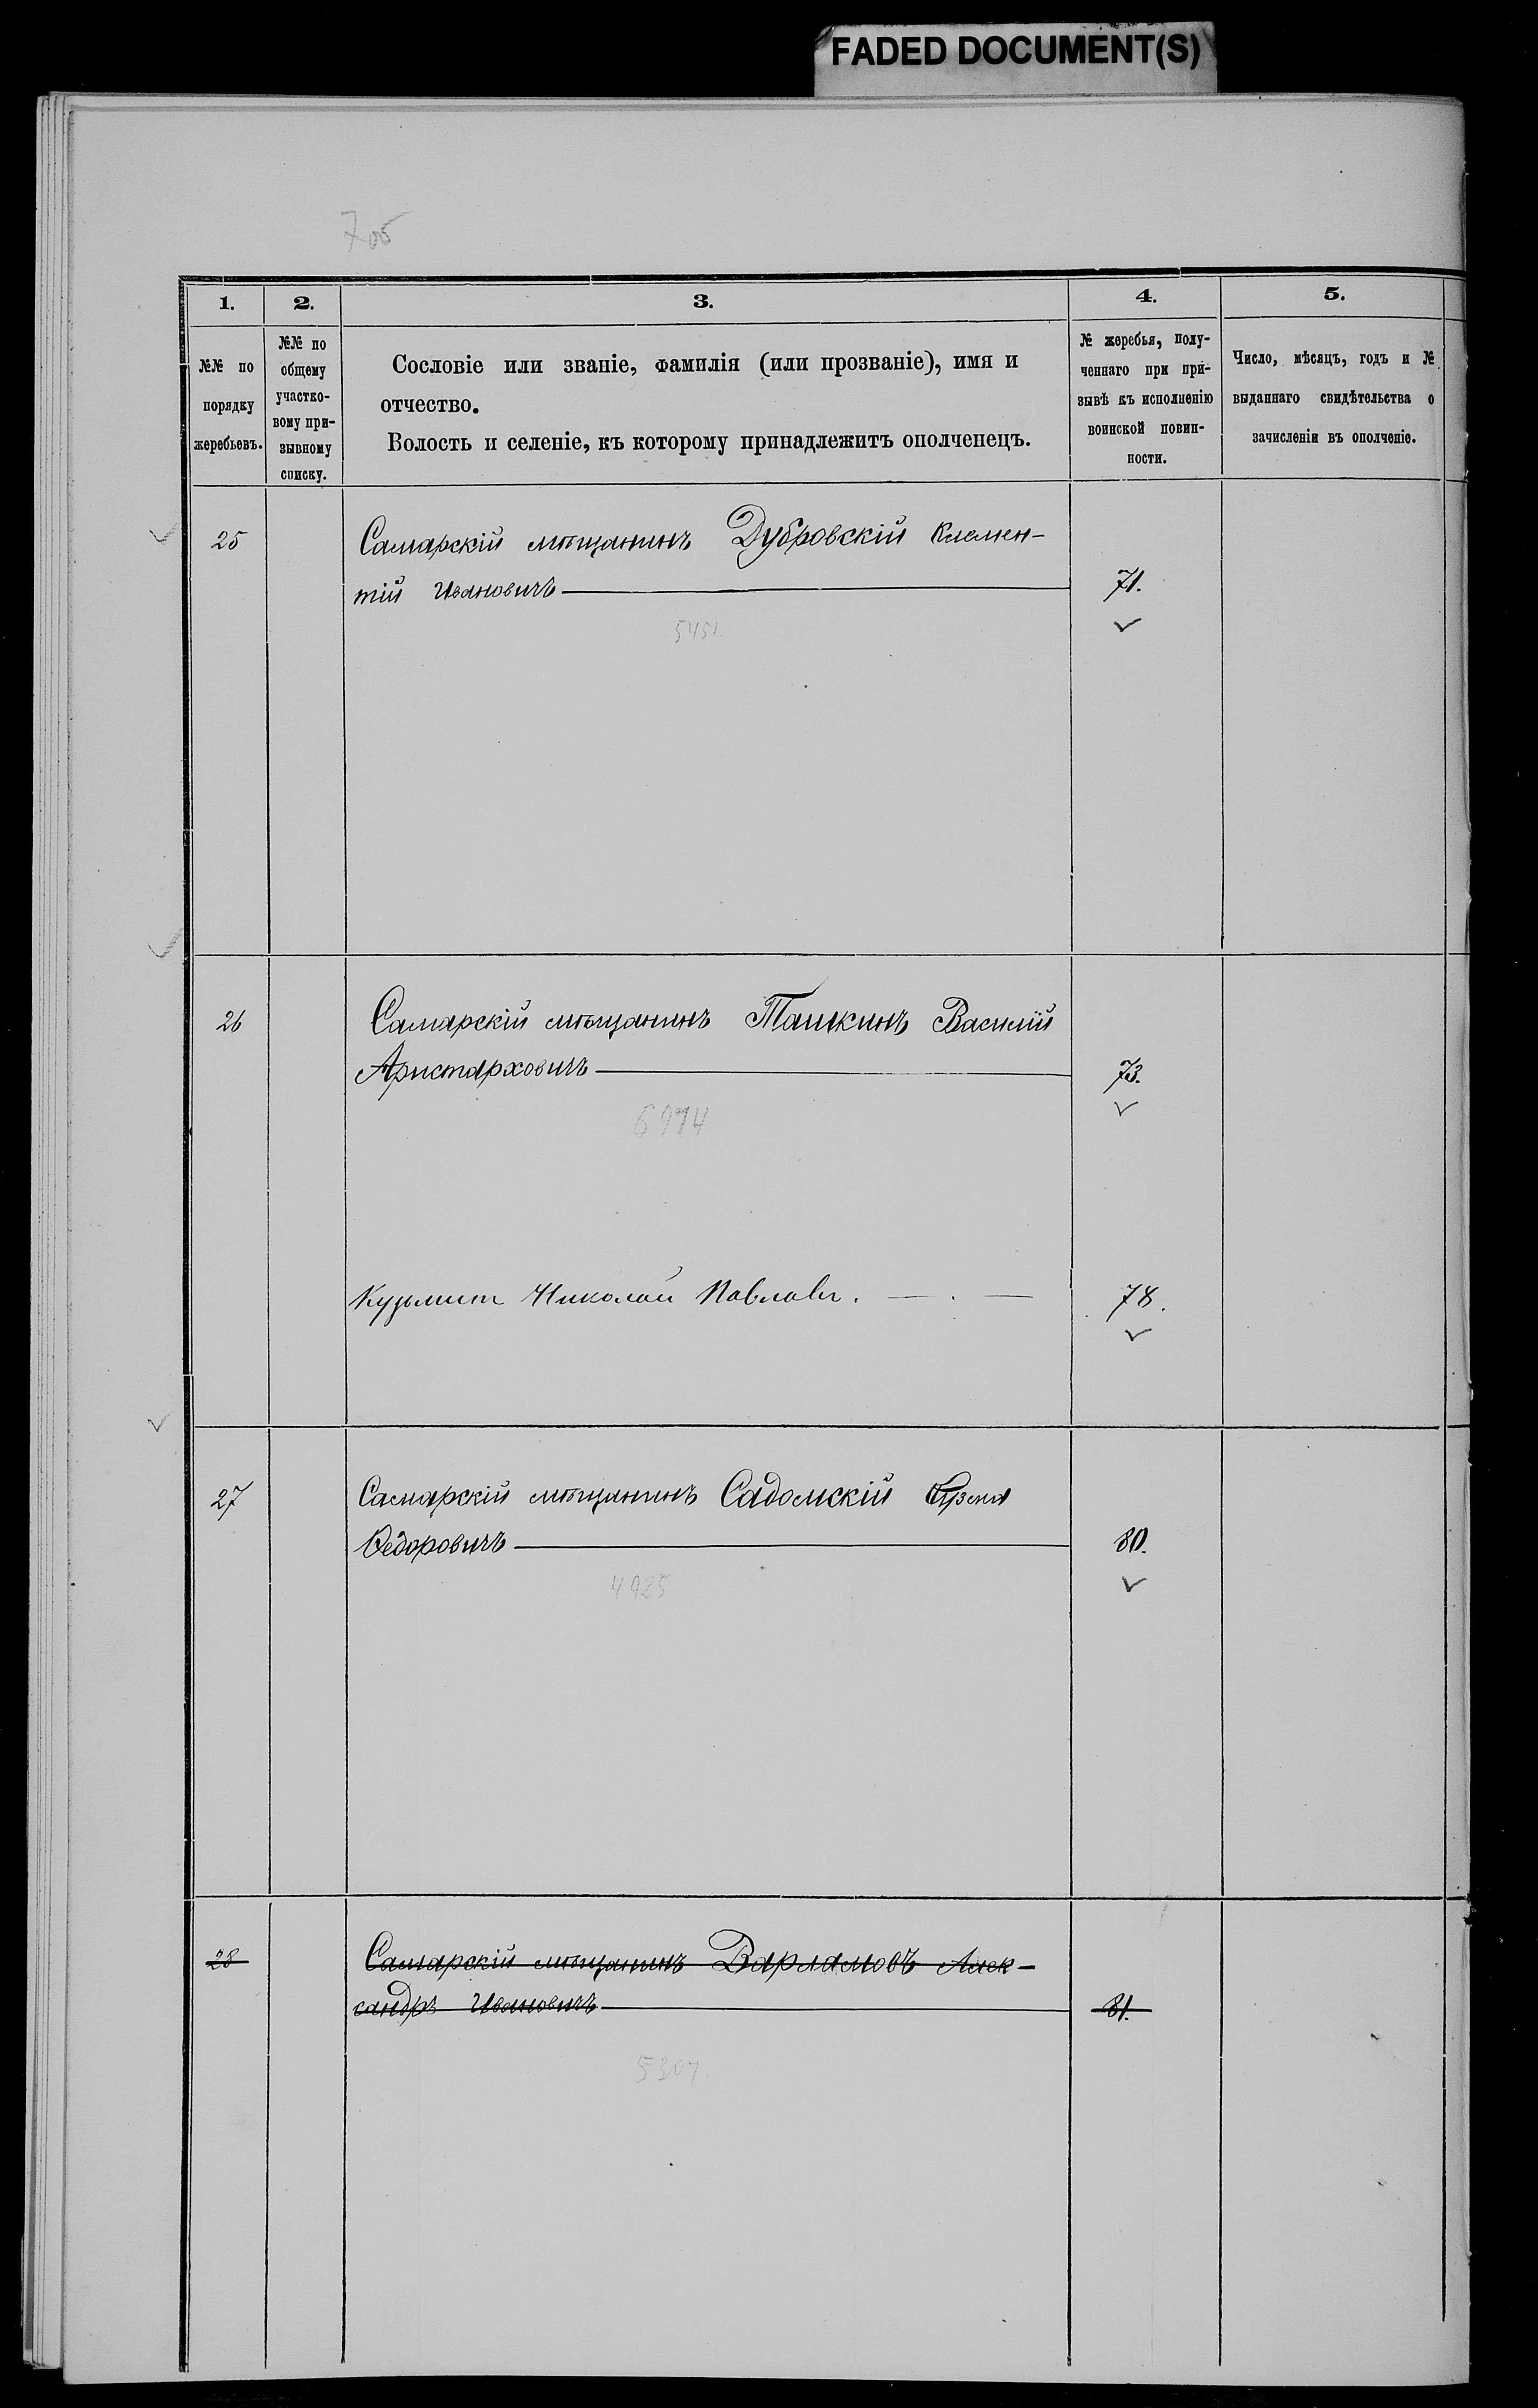 FADED DOCUMENT(S)
705
1. 2. 3. 4. 5.
№№ по
порядку
жеребьевъ.
№№ по
общему
участко-
вому при-
зывному
списку.
Сословіе или званіе, фамилія (или прозваніе), имя и
отчество.
Волость и селеніе, къ которому принадлежитъ ополченецъ.
№ жеребья, полу-
ченнаго при при-
зывѣ къ исполненію
воинской повин-
ности.
Число, мѣсяцъ, годъ и №
выданнаго свидѣтельства о
зачисленіи въ ополченіе.
25 Самарскій мѣщанинъ Дубровскій Клемен-
тій Ивановичъ 71.
5451
26 Самарскій мѣщанинъ Ташкинъ Василій
Аристарховичъ 73.
6974
Николай Павлов. 78.
27 Самарскій мѣщанинъ Садомскій
Ѳедоровичъ 80.
4925
28 Самарскій мѣщанинъ Варламовъ Алек-
сандръ Ивановичъ 81.
5307